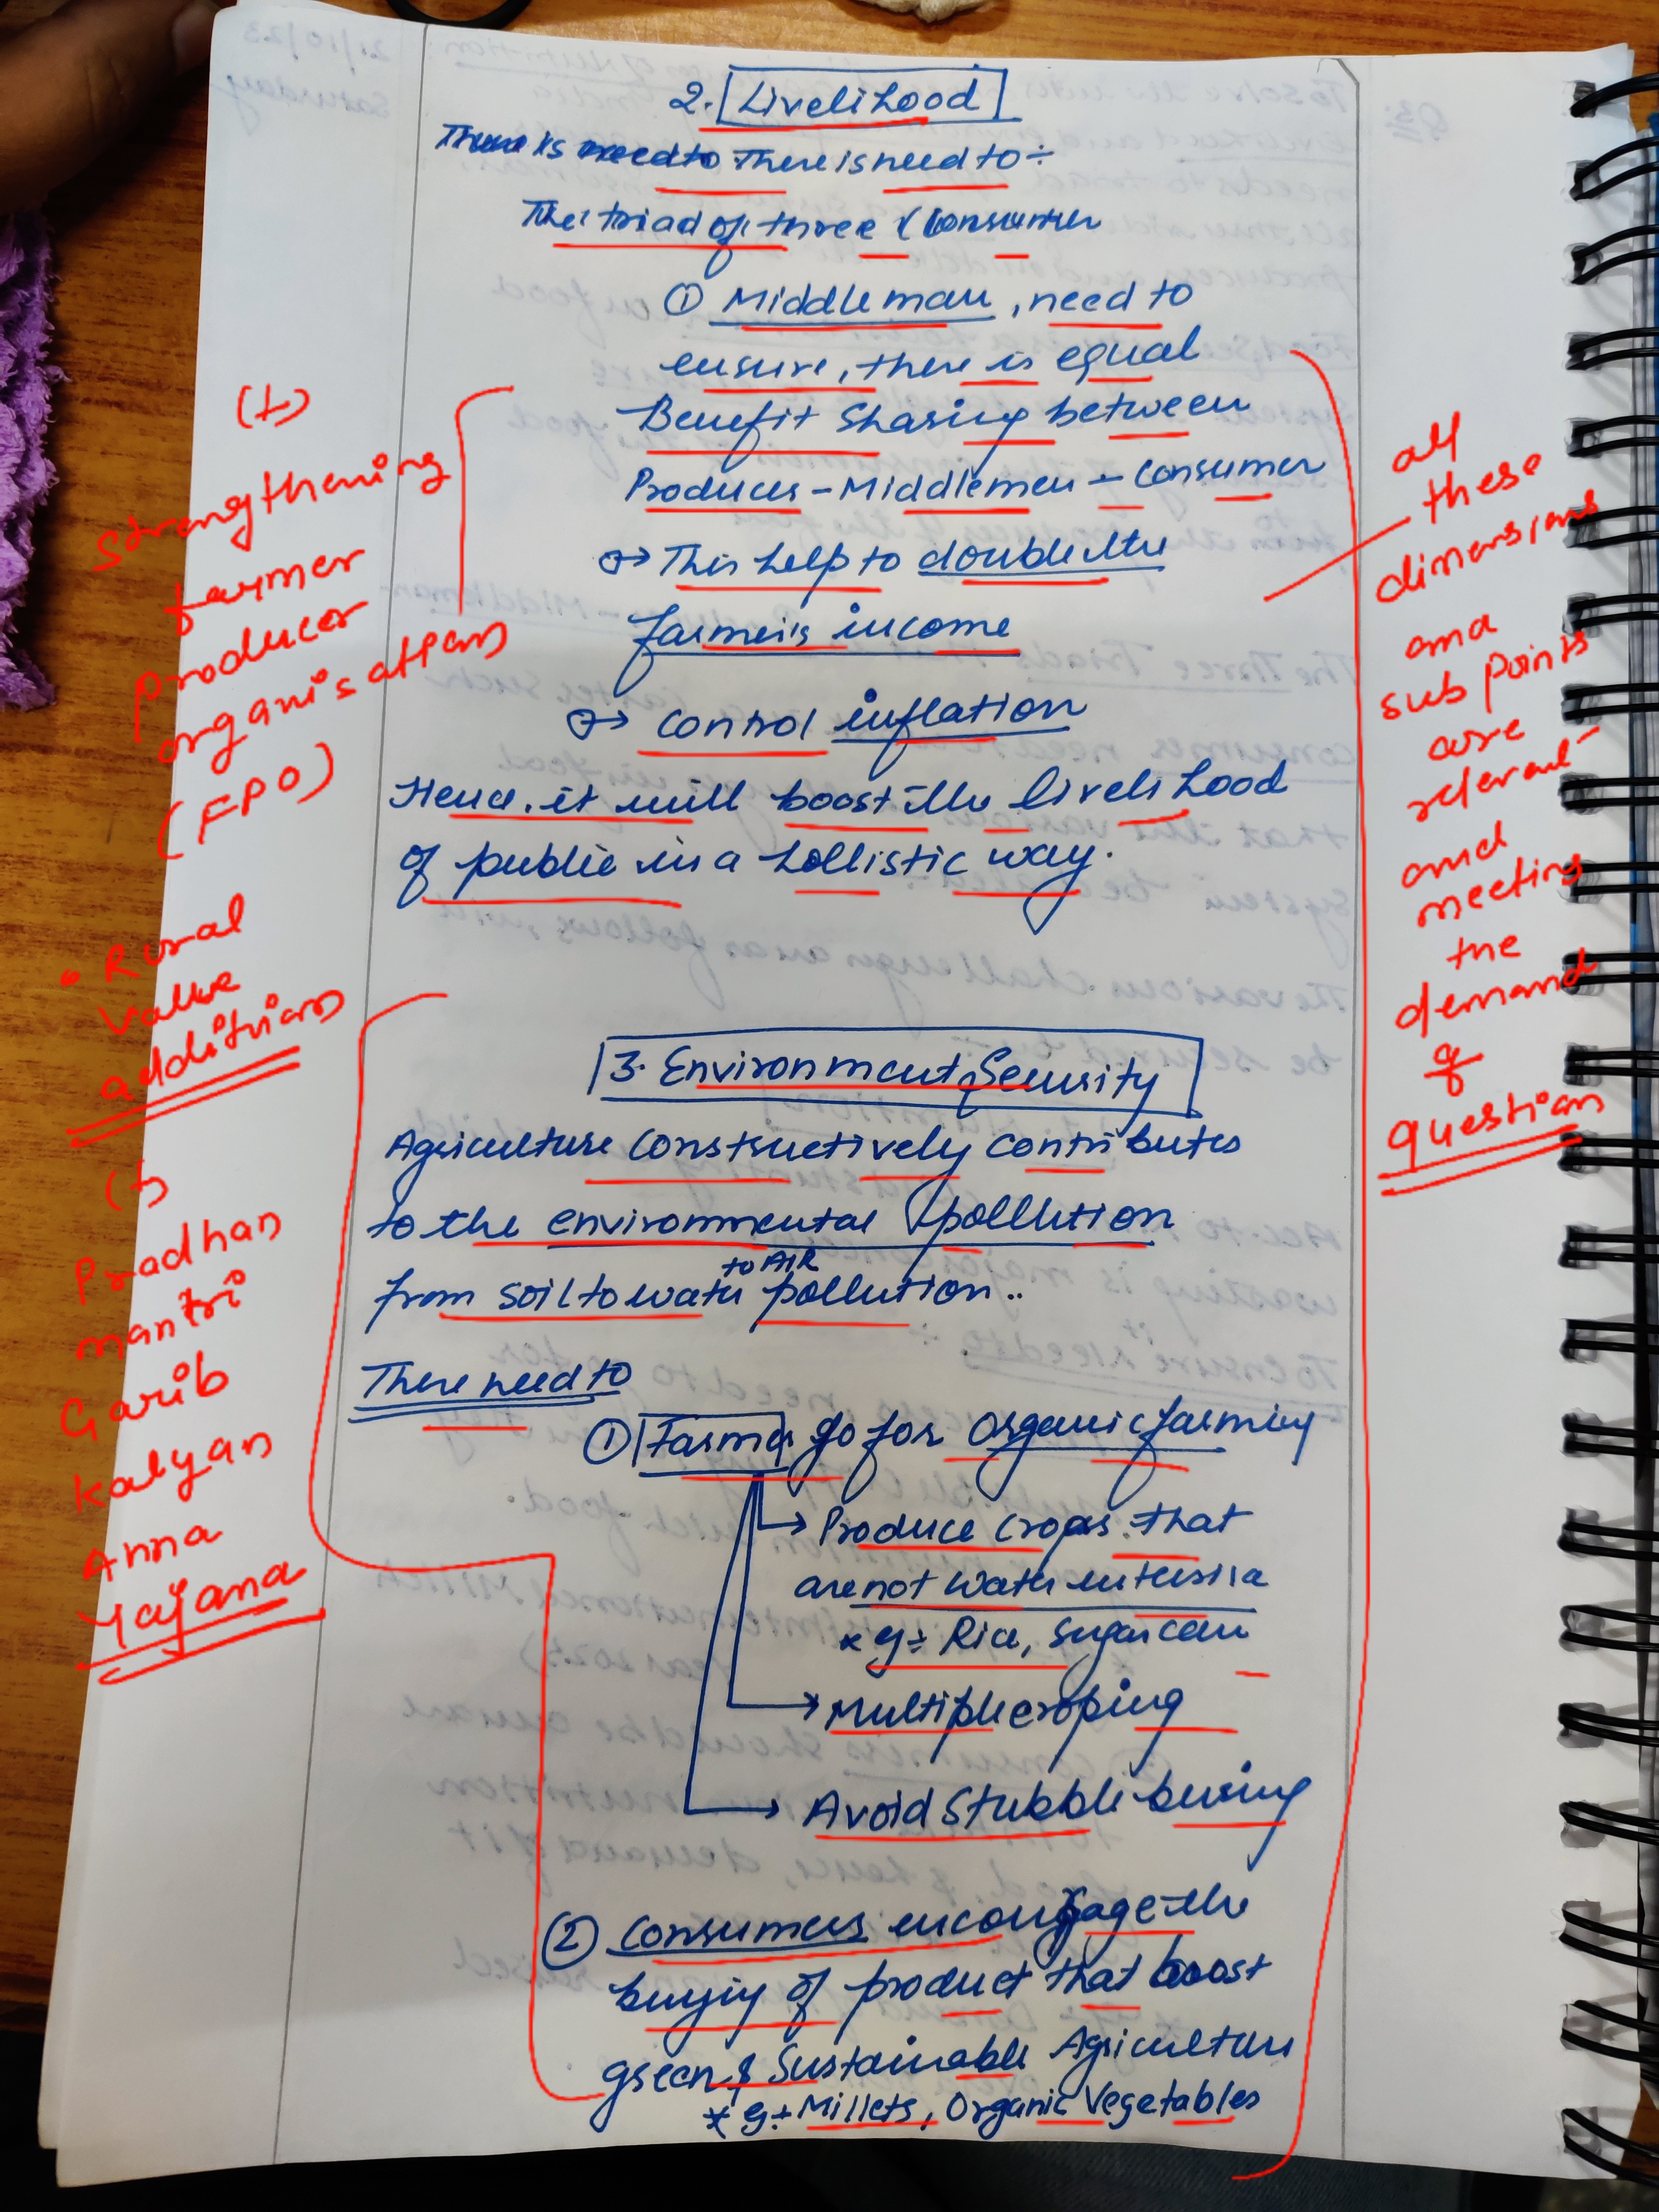 2. Livelihood
There is need to There is need to ÷
The triad of three (Consumer
① Middleman, need to
ensure, there is equal
Benefit Sharing between
Produces - Middlemen - Consumer
→ This help to double the
farmer's income
→ Control inflation
Hence, it will boost the livelihood
of public in a hollistic way.
3. Environment Security
Agriculture constructively contributes
to the environmental pollution
to AIR
from soil to water pollution..
There need to
① Farmer go for Organic farming
→ Produce crops that
are not water intensive
* eg ÷ Rice, Sugarcane
→ Multiple croping
→ Avoid Stubble burning
② Consumers encourage the
buying of product that boost
green & Sustainable Agriculture
* eg ÷ Millets, Organic Vegetables
(+)
Strengthening
farmer
producer
organisations
(FPO)
• Rural
value
additions
(+)
Pradhan
mantri
Garib
kalyan
Anna
Yojana
all
these
dimensions
and
sub points
are
relevant
and
meeting
the
demand
of
question